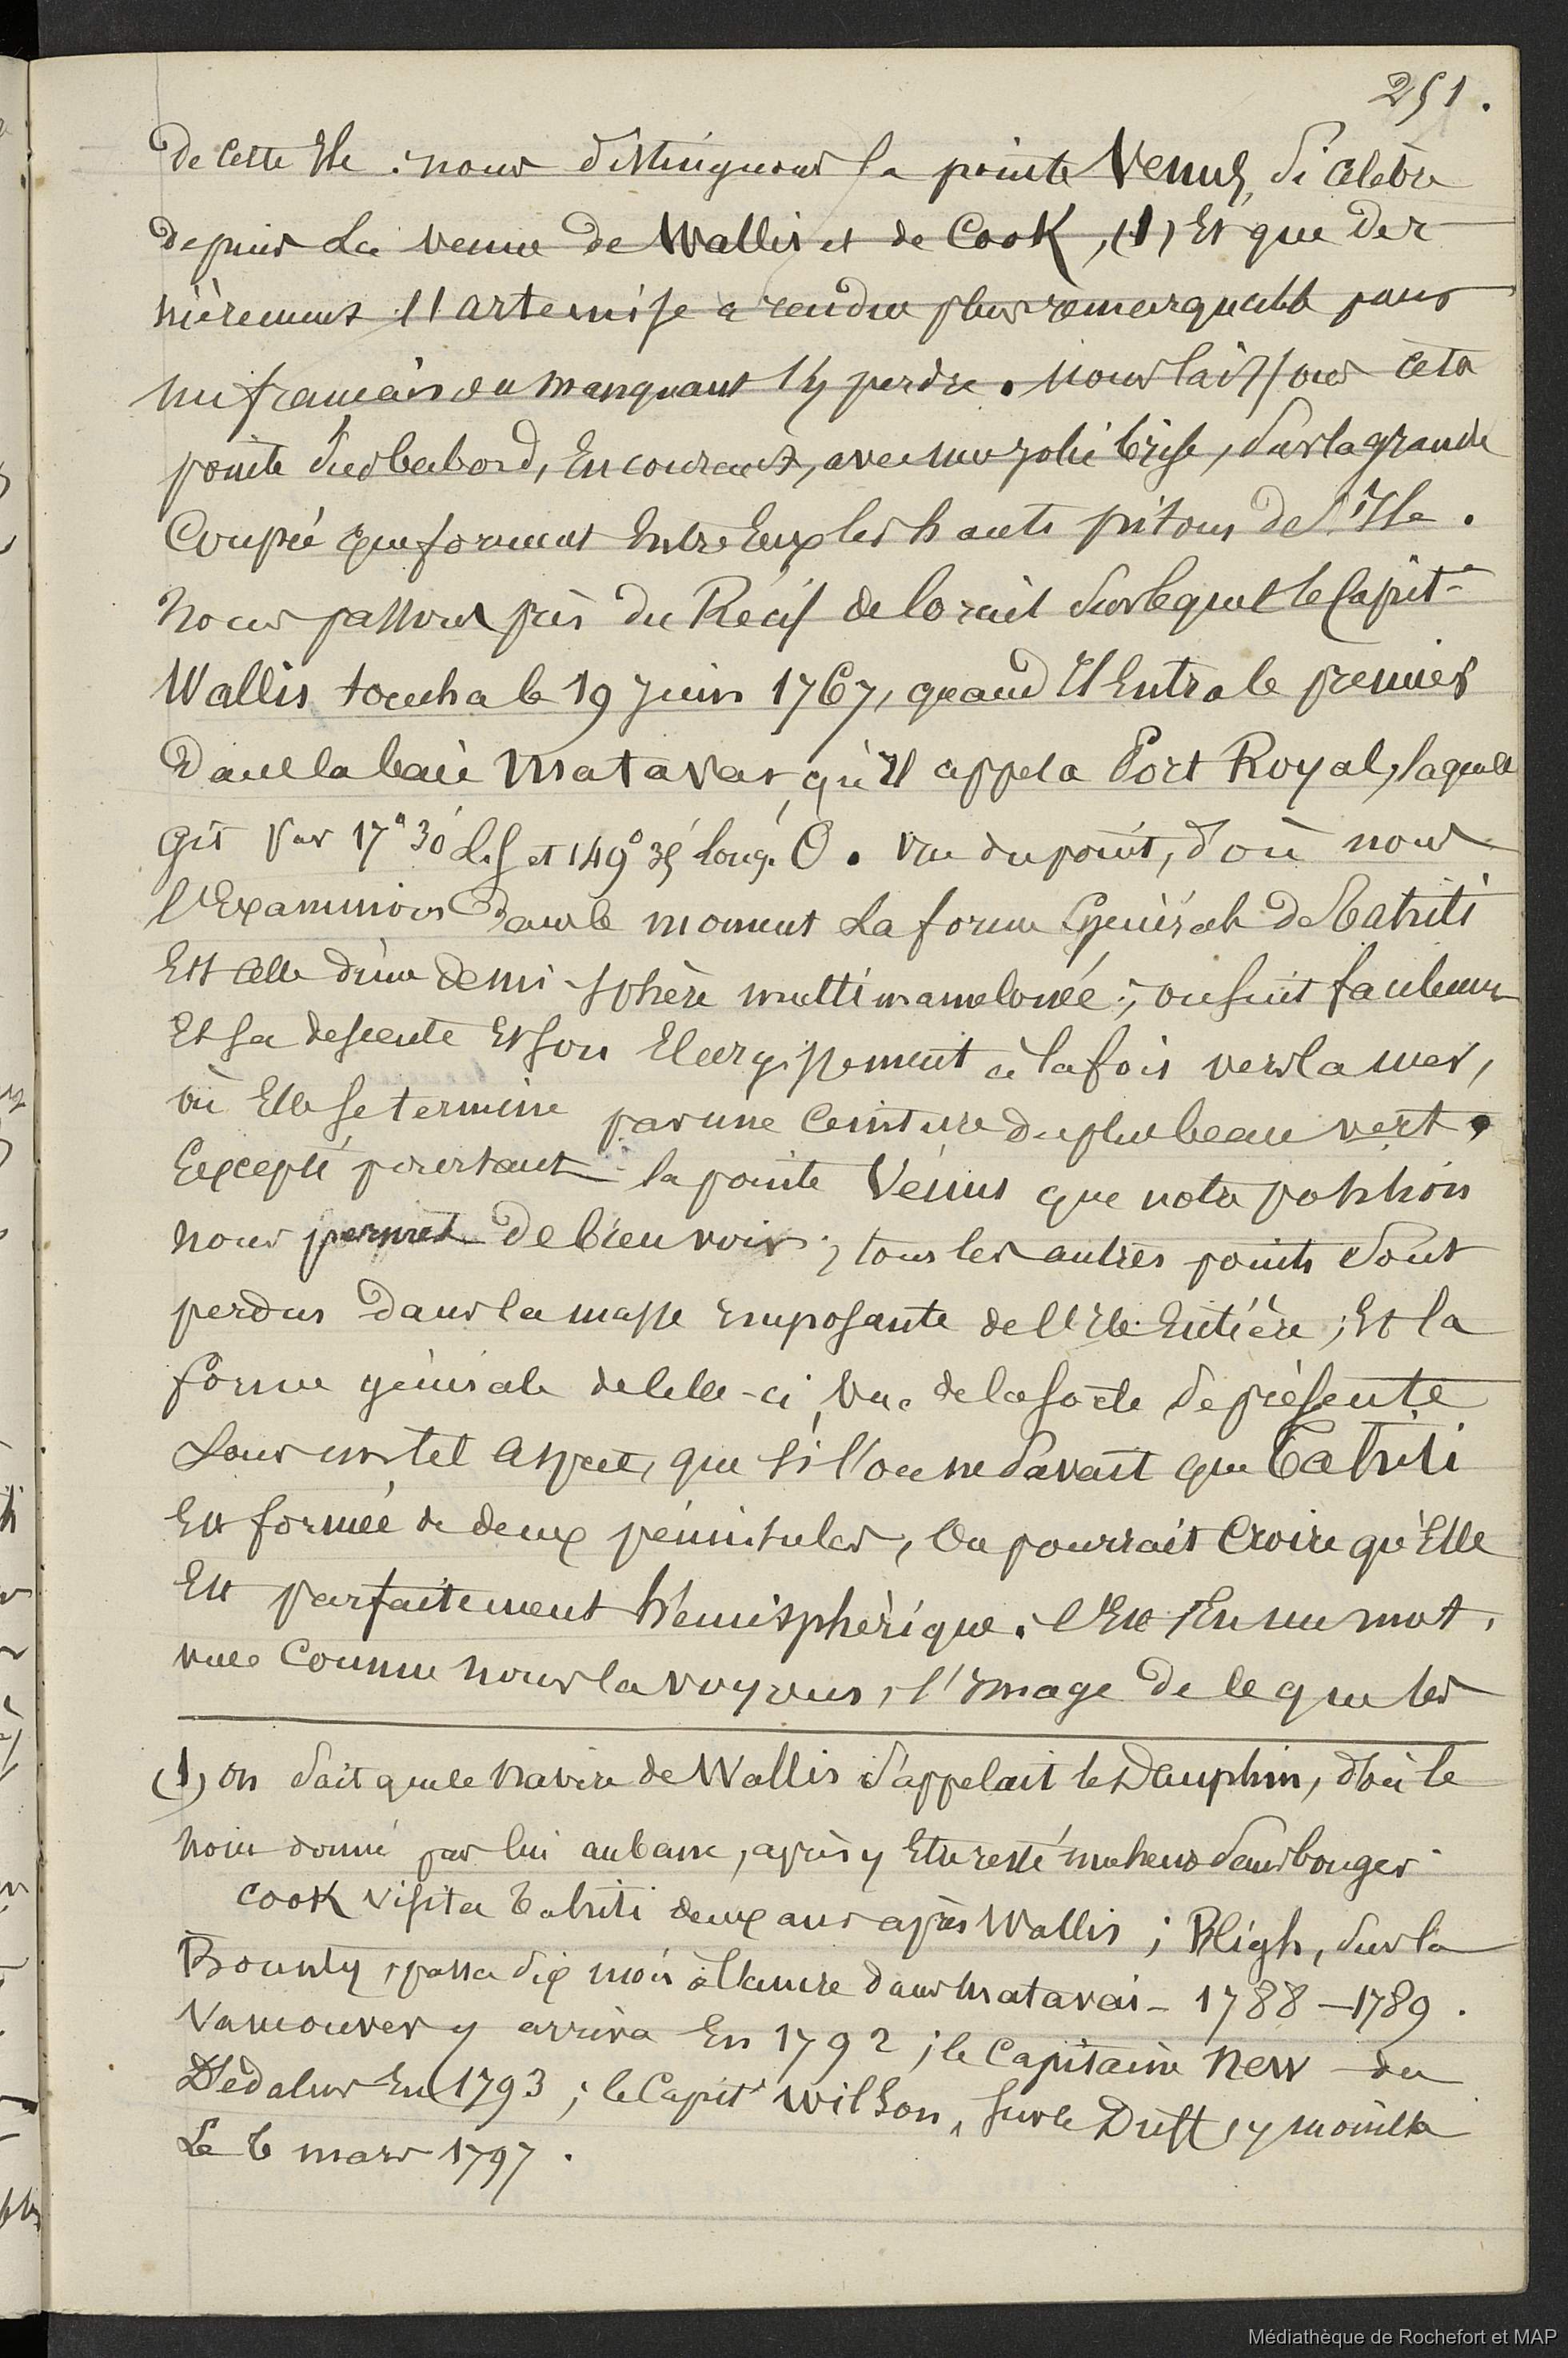 251.
de cette Ile : nous distinguons la pointe Venus, si célèbre
depuis la venue de Wallis et de Cook, (1) Et que der-
nièrement l'artemise a rendue plus remarquable pour
un français en manquant s'y perdre. nous laissons cette
pointe sur babord, En courant, avec une jolie brise, sur la grande
Coupée que forment Entre Eux les hauts pitons de l'Ile.
Nous passons près du Récif de corail sur lequel le Capit.e
Wallis toucha le 19 Juin 1767, quand Il Entra le premier
Dans la baie Matavai, qu'Il appela Port Royal, laquelle
Gît par 17° 30' L.S et 149° 35' long. O. Vue du point, d'où nous
l'Examinions Dans le moment la forme Générale de Tahiti
Est celle d'une demi-sphère multimamelonée ; on suit facilement
Et sa descente Et son Elargissement à la fois vers la mer,
où Elle se termine par une Ceinture du plus beau vert.
Excepté pourtant la pointe Vénus que notre position
nous permet De bien voir ; tous les autres points sont
perdus Dans la masse Imposante de l'Ile Entière ; Et la
forme générale de celle-ci, vue de la sorte se présente
sous un tel aspect, que si l'on ne savait que Tahiti
Est formée de deux péninsules, On pourrait Croire qu'Elle
Est parfaitement hémisphérique. C'Est En un mot,
vue Comme nous la voyons, l'Image De ce que les
(1) on sait que le navire de Wallis s'appelait le Dauphin, d'où le
nom donné par lui au banc, après y Etre resté une heure sans bouger
Cook visita Tahiti deux ans après Wallis ; Bligh, sur la
Bounty, passa dix mois à l'ancre dans Matavai - 1788 - 1789.
Vancouver y arriva En 1792 ; le Capitaine New - du
Dédalus En 1793 ; le Capit.e Wilson, sur le Duff, y mouilla
Le 6 mars 1797.
Médiathèque de Rochefort et MAP